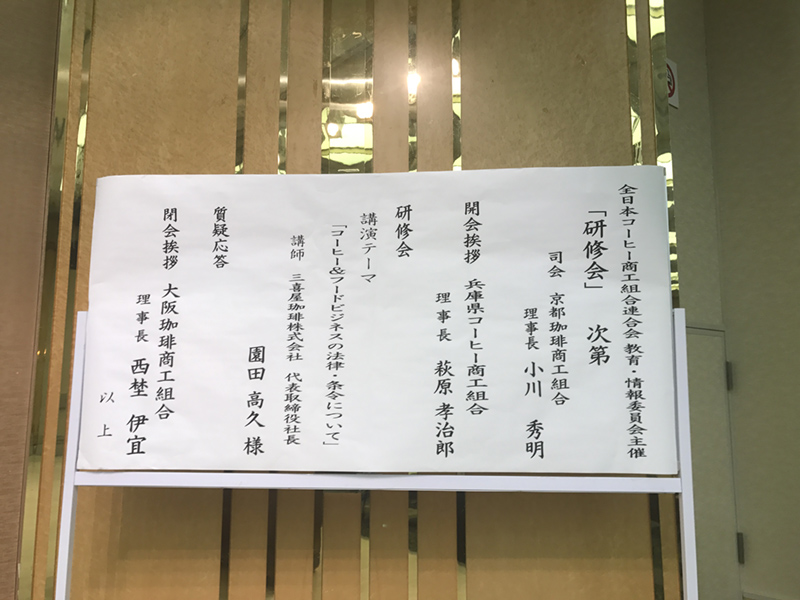 全日本コーヒー商工組合連合会 教育・情報委員会主催
「研修会」 次第
司会 京都珈琲商工組合
理事長 小川 秀明
開会挨拶 兵庫県コーヒー商工組合
理事長 萩原 孝治郎
研修会
講演テーマ
「コーヒー&フードビジネスの法律・条令について」
講師 三喜屋珈琲株式会社 代表取締役社長
園田 高久 様
質疑応答
閉会挨拶 大阪珈琲商工組合
理事長 西埜 伊宜
以上